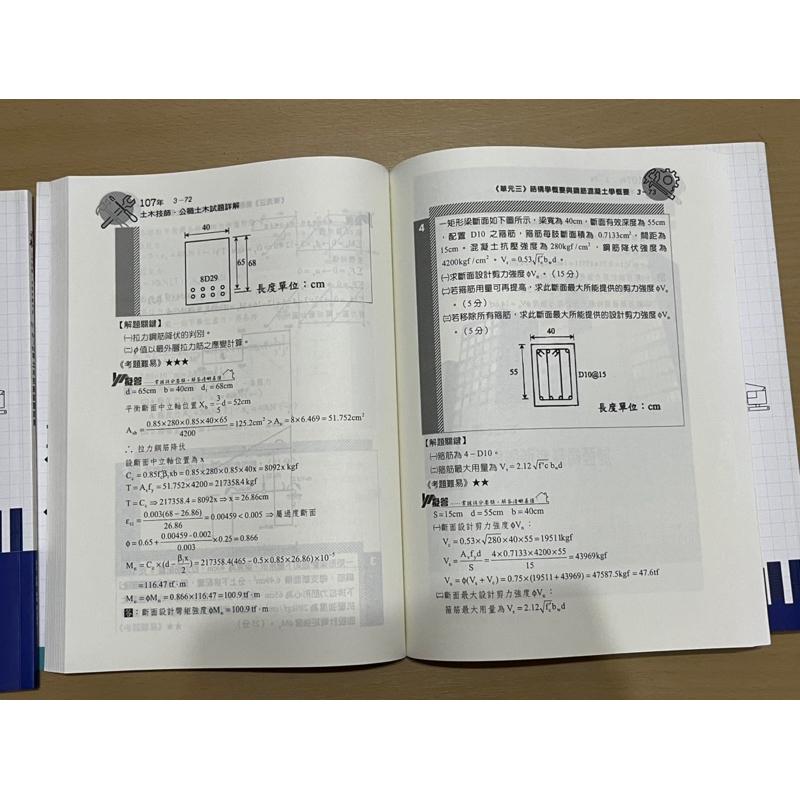 107年 3-72
土木技師、公職土木試題詳解
40
65 68
8D29
長度單位：cm
【解題關鍵】
㈠拉力鋼筋降伏的判別。
㈡φ值以最外層拉力筋之應變計算。
《考題難易》★★★
d=65cm b=40cm dt=68cm
平衡斷面中立軸位置Xb=3/5d=52cm
Asb=0.85×280×0.85×40×65/4200=125.2cm²>As=8×6.469=51.752cm²
∴ 拉力鋼筋降伏
設斷面中立軸位置為 x
Cc=0.85f'cβ1xb=0.85×280×0.85×40x=8092x kgf
T=Asfy=51.752×4200=217358.4 kgf
T=Cc⇒217358.4=8092x⇒x=26.86cm
εt=0.003(68-26.86)/26.86=0.00459<0.005⇒屬過度斷面
φ=0.65+0.00459-0.002/0.003×0.25=0.866
Mn=Cc×(d-β1x/2)=217358.4(65-0.5×0.85×26.86)×10⁻⁵
=116.47 tf‧m
Mu=φMn=0.866×116.47=100.9 tf‧m
答：斷面設計彎矩強度φMn=100.9 tf‧m
《單元三》結構學概要與鋼筋混凝土學概要 3-73
4
一矩形梁斷面如下圖所示，梁寬為 40cm，斷面有效深度為 55cm
，配置 D10 之箍筋，箍筋每肢斷面積為 0.7133cm²，間距為
15cm。混凝土抗壓強度為 280kgf/cm²，鋼筋降伏強度為
4200kgf/cm²。Vc=0.53√f'c bwd。
㈠求斷面設計剪力強度φVn。（15分）
㈡若箍筋用量可再提高，求此斷面最大所能提供的剪力強度φVn
。（5分）
㈢若移除所有箍筋，求此斷面最大所能提供的設計剪力強度φVn
。（5分）
40
55
D10@15
長度單位：cm
【解題關鍵】
㈠箍筋為 4-D10。
㈡箍筋最大用量為 Vs=2.12√f'c bwd
《考題難易》★★
S=15cm d=55cm b=40cm
㈠斷面設計剪力強度φVn：
Vc=0.53×√280×40×55=19511kgf
Vs=Avfyd/S=4×0.7133×4200×55/15=43969kgf
Vu=φ(Vc+Vs)=0.75×(19511+43969)=47587.5kgf=47.6tf
㈡斷面最大設計剪力強度φVn：
箍筋最大用量為 Vs=2.12√f'c bwd